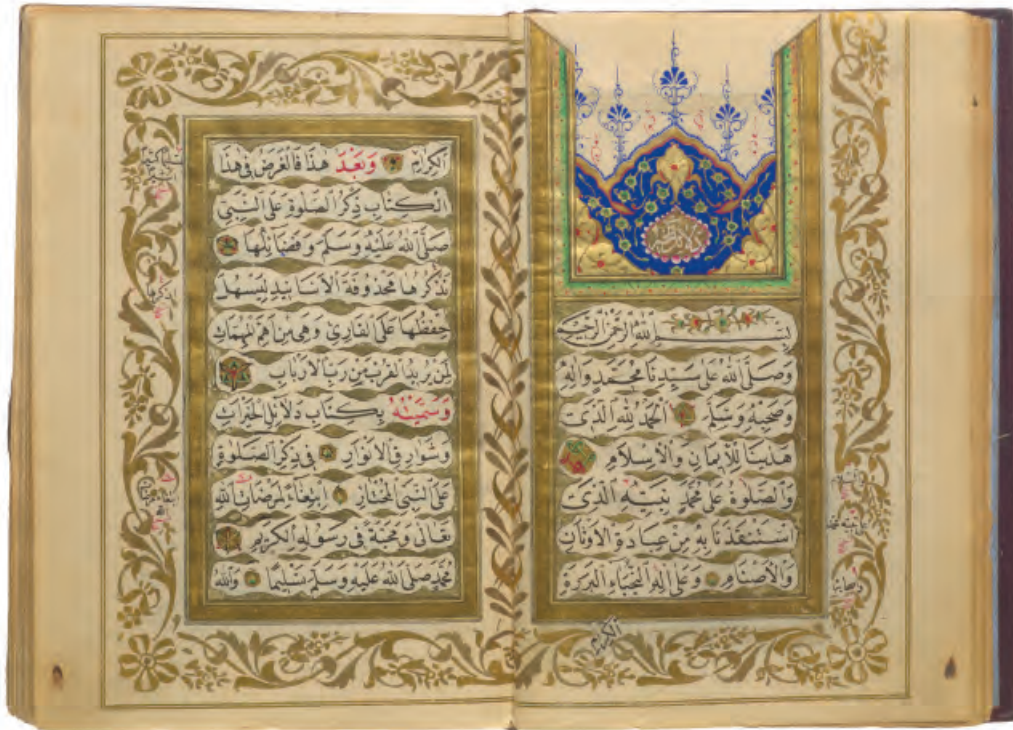 بسم الله الرحمن الرحيم
وصلى الله على سيدنا محمد واله
وصحبه وسلم الحمد لله الذى
هدينا للايمان والاسلام
والصلوة على محمد نبيه الذى
استنقذنا به من عبادة الاوثان
والاصنام وعلى اله النجباء البررة
الكرام
الكرام وبعد هذا فالغرض فى هذا
الكتاب ذكر الصلوة على النبى
صلى الله عليه وسلم وفضائلها
نذكرها محذوفة الاسانيد ليسهل
حفظها على القارئ وهى من اهم المهمات
لمن يريد القرب من رب الارباب
وسميته بكتاب دلائل الخيرات
وشوارق الانوار فى ذكر الصلوة
على النبى المختار ابتغاء لمرضات الله
تعالى ومحبة فى رسوله الكريم
محمد صلى الله عليه وسلم تسليما والله